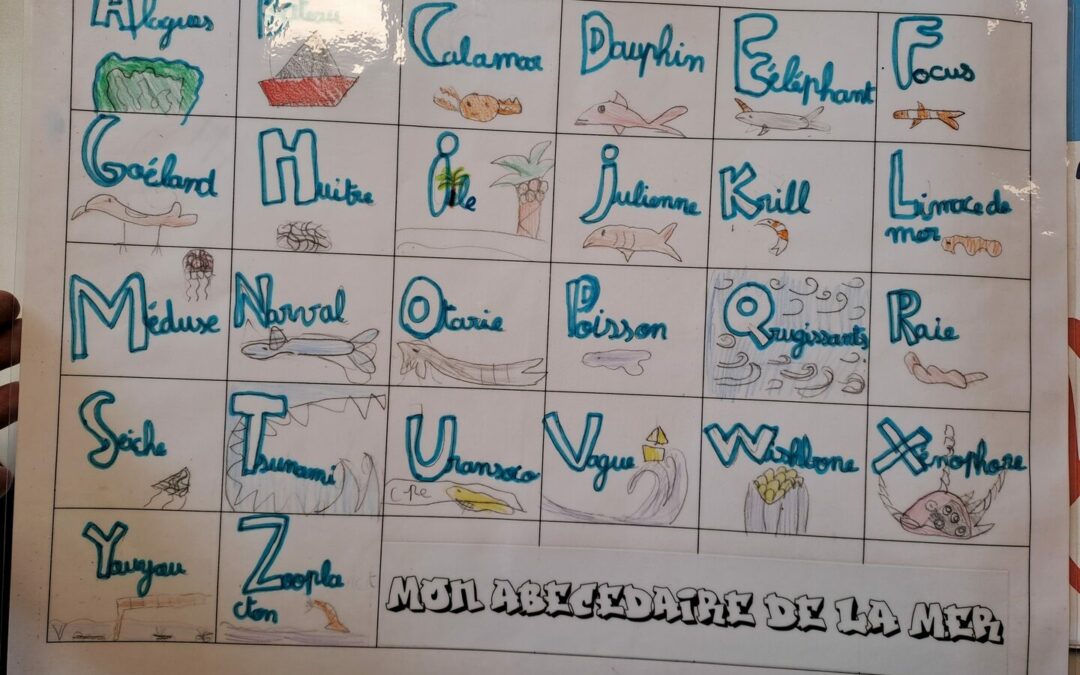 Alagues
Calamar
Dauphin
Eéléphant
Focus
Goéland
Huitre
île
julienne
Krill
Limace de
mer
Méduse
Narval
Otarie
Poisson
Qrugissants
Raie
Séiche
Tsunami
Uransoco
Vague
Wishbone
Xénophore
Yauyau
Zoopla
cton
MON ABECEDAIRE DE LA MER